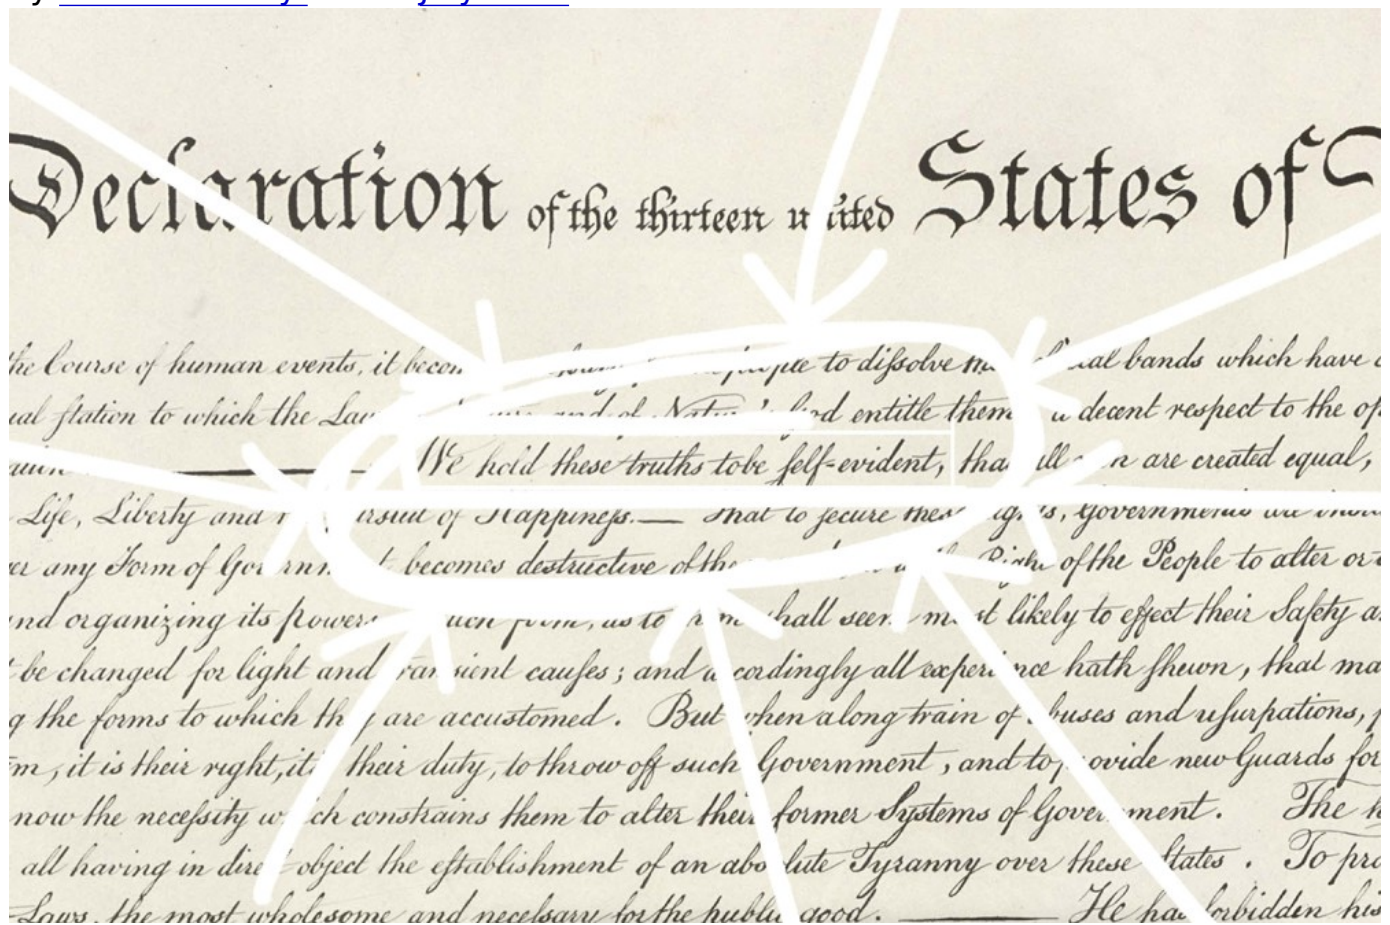 Declaration of the thirteen united States of
the Course of human events, it becom people to dissolve bands which have
ual station to which the Law and of Nature's God entitle them a decent respect to the op
We hold these truths to be self-evident, that all men are created equal,
Life, Liberty and pursuit of Happiness.— That to secure these rights, Governments are
er any Form of Government becomes destructive of the Right of the People to alter or
and organizing its powers such form, as to them shall seem most likely to effect their Safety a
be changed for light and transient causes; and accordingly all experience hath shewn, that ma
g the forms to which they are accustomed. But when a long train of abuses and usurpations, p
m, it is their right, it is their duty, to throw off such Government, and to provide new Guards for
now the necessity which constrains them to alter their former Systems of Government. The h
all having in direct object the establishment of an absolute Tyranny over these States. To pro
Laws, the most wholesome and necessary for the public good. — He has forbidden his